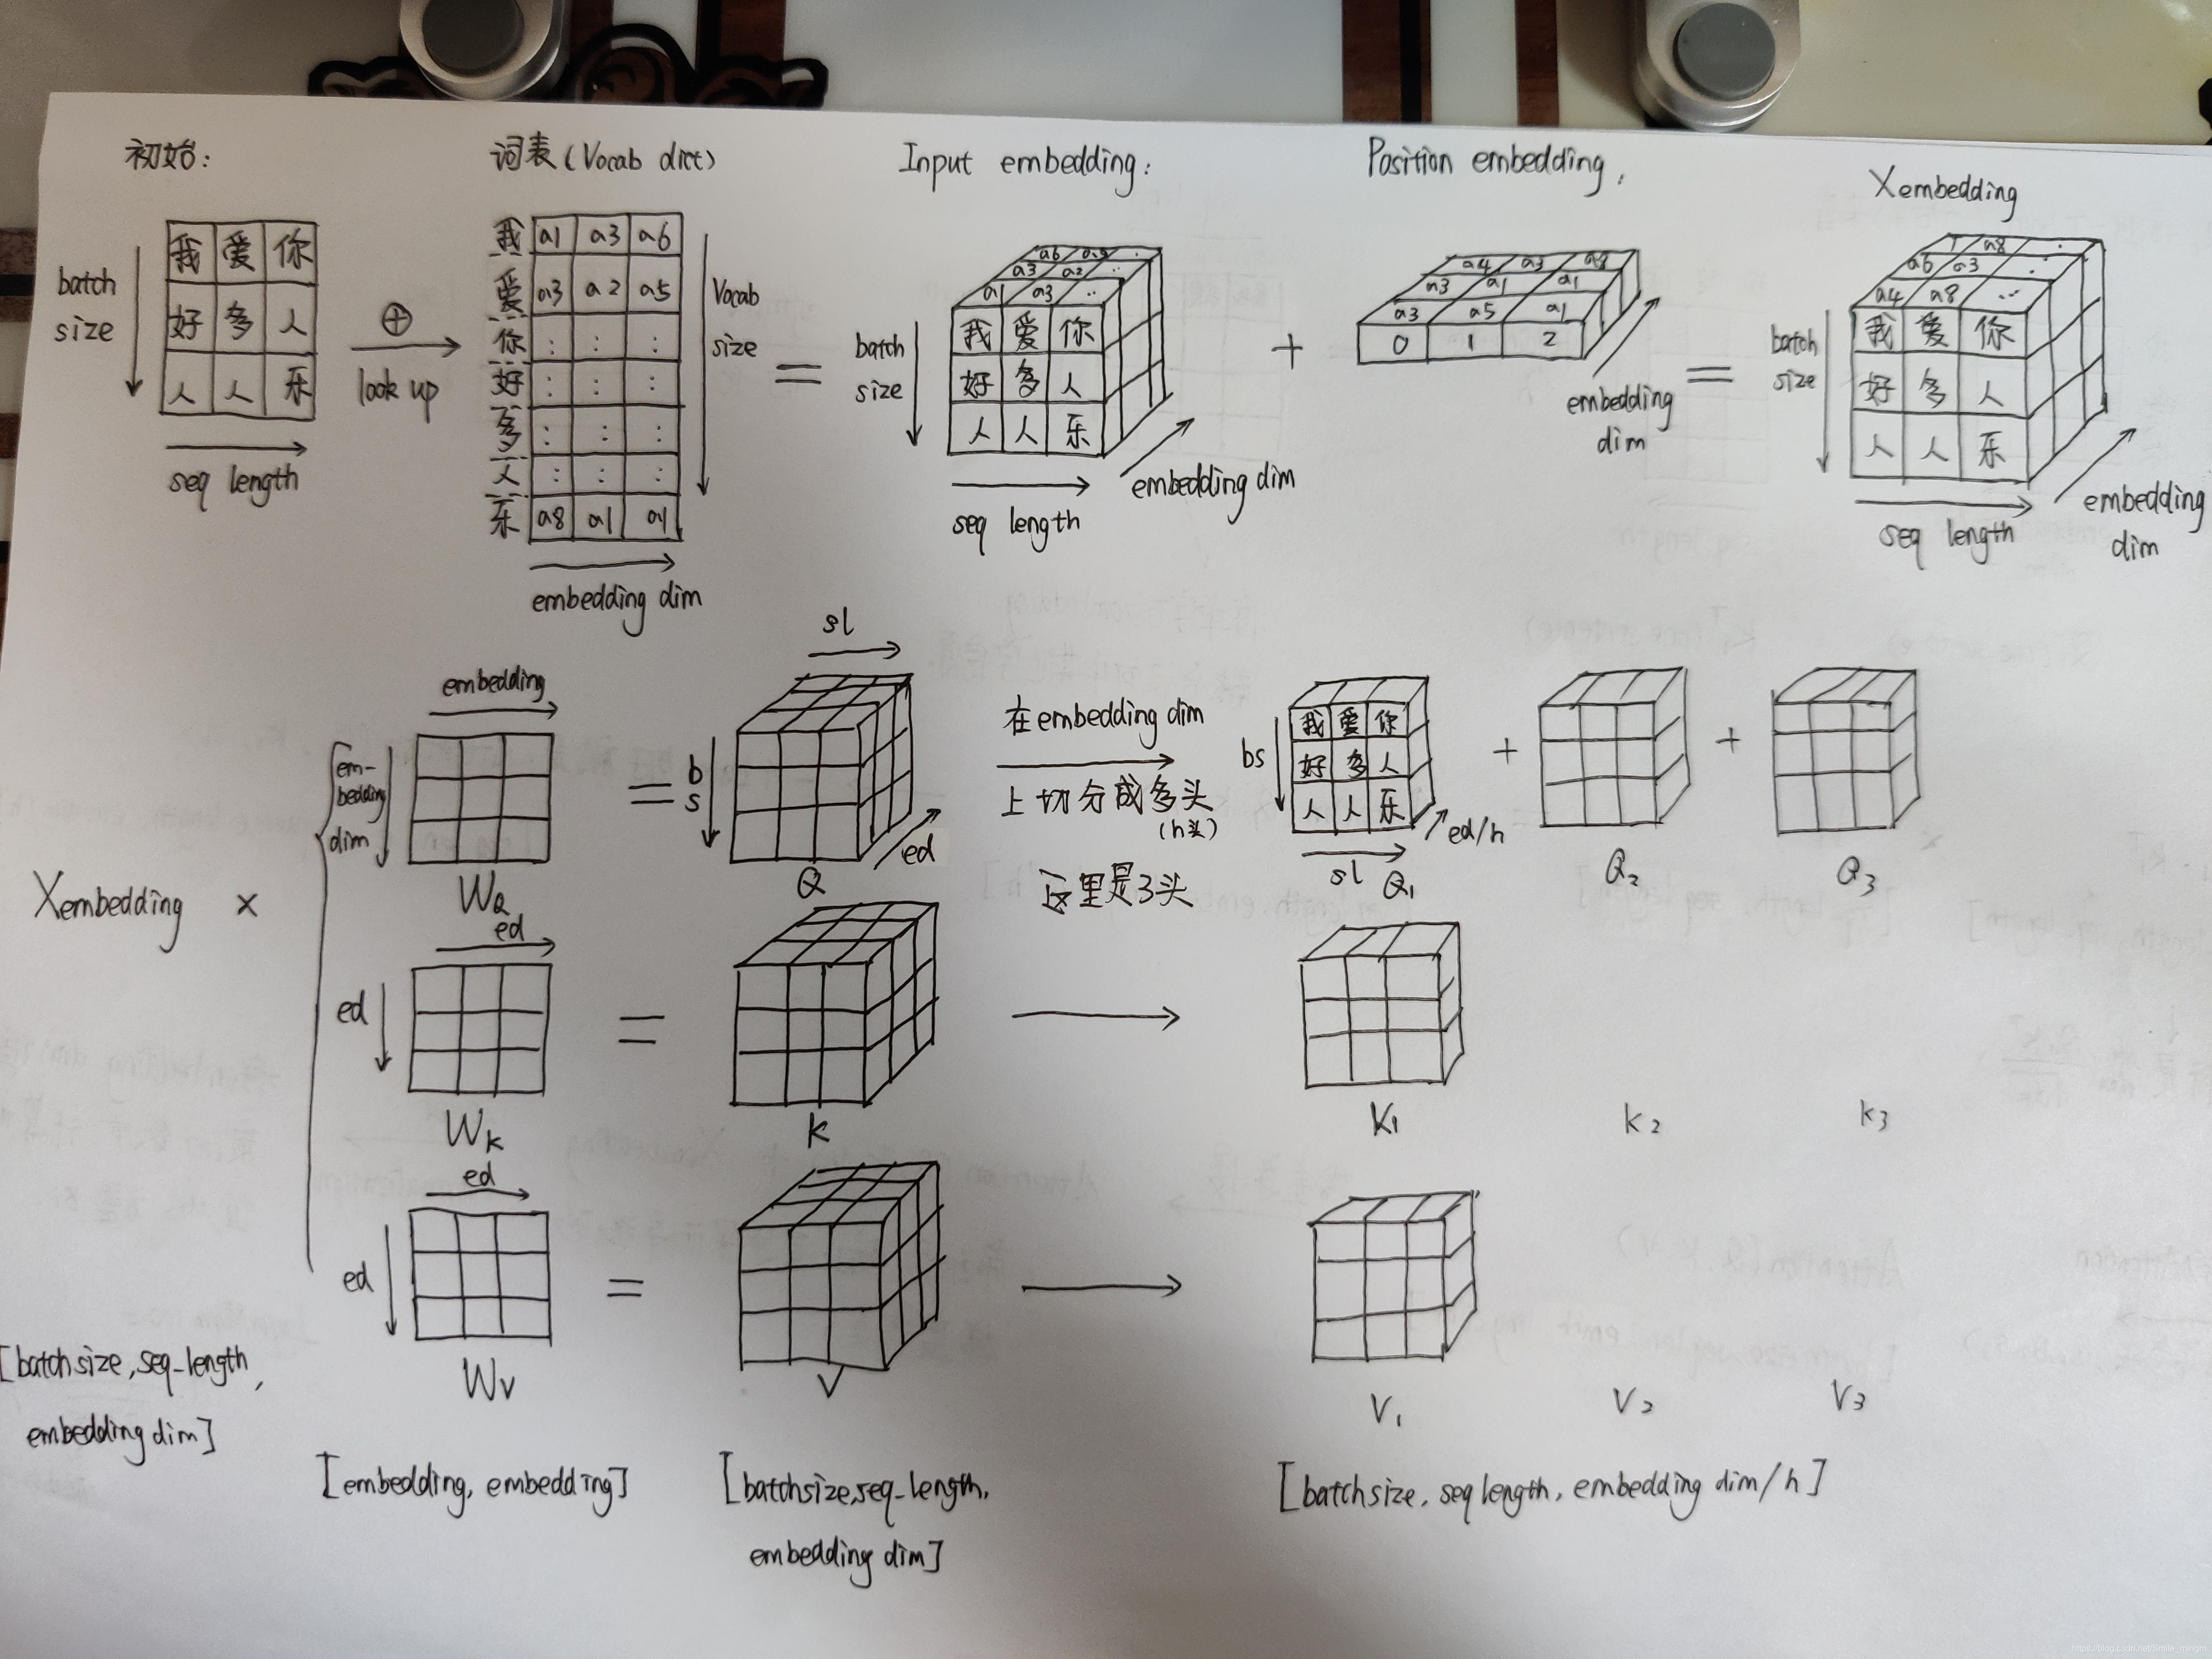 初始:
词表(Vocab dict)
Input embedding:
Position embedding,
Xembedding
batch
size
我 爱 你
好 多 人
人 人 乐
seq length
⊕
look up
我 a1 a3 a6
爱 a3 a2 a5
你 : : :
好 : : :
多 : : :
人 : : :
乐 a8 a1 a1
Vocab
size
embedding dim
=
batch
size
a6 a9 .
a3 a2 ..
a1 a3 ..
我 爱 你
好 多 人
人 人 乐
seq length
embedding dim
+
a4 a3 a8
a3 a1 a1
a3 a5 a1
0 1 2
embedding
dim
=
batch
size
1 a8 .
a6 a3 :
a4 a8 ..
我 爱 你
好 多 人
人 人 乐
seq length
embedding
dim
Xembedding ×
[batchsize,seq_length,
embedding dim]
embedding
em-
bedding
dim
WQ
=
sl
b
s
ed
Q
在embedding dim
上切分成多头
(h头)
这里是3头
bs
我 爱 你
好 多 人
人 人 乐
ed/h
sl Q1
+
Q2
+
Q3
ed
ed
WK
=
K
K1
K2
K3
ed
ed
WV
=
V
V1
V2
V3
[embedding, embedding]
[batchsize,seq_length,
embedding dim]
[batchsize, seq length, embedding dim/h]